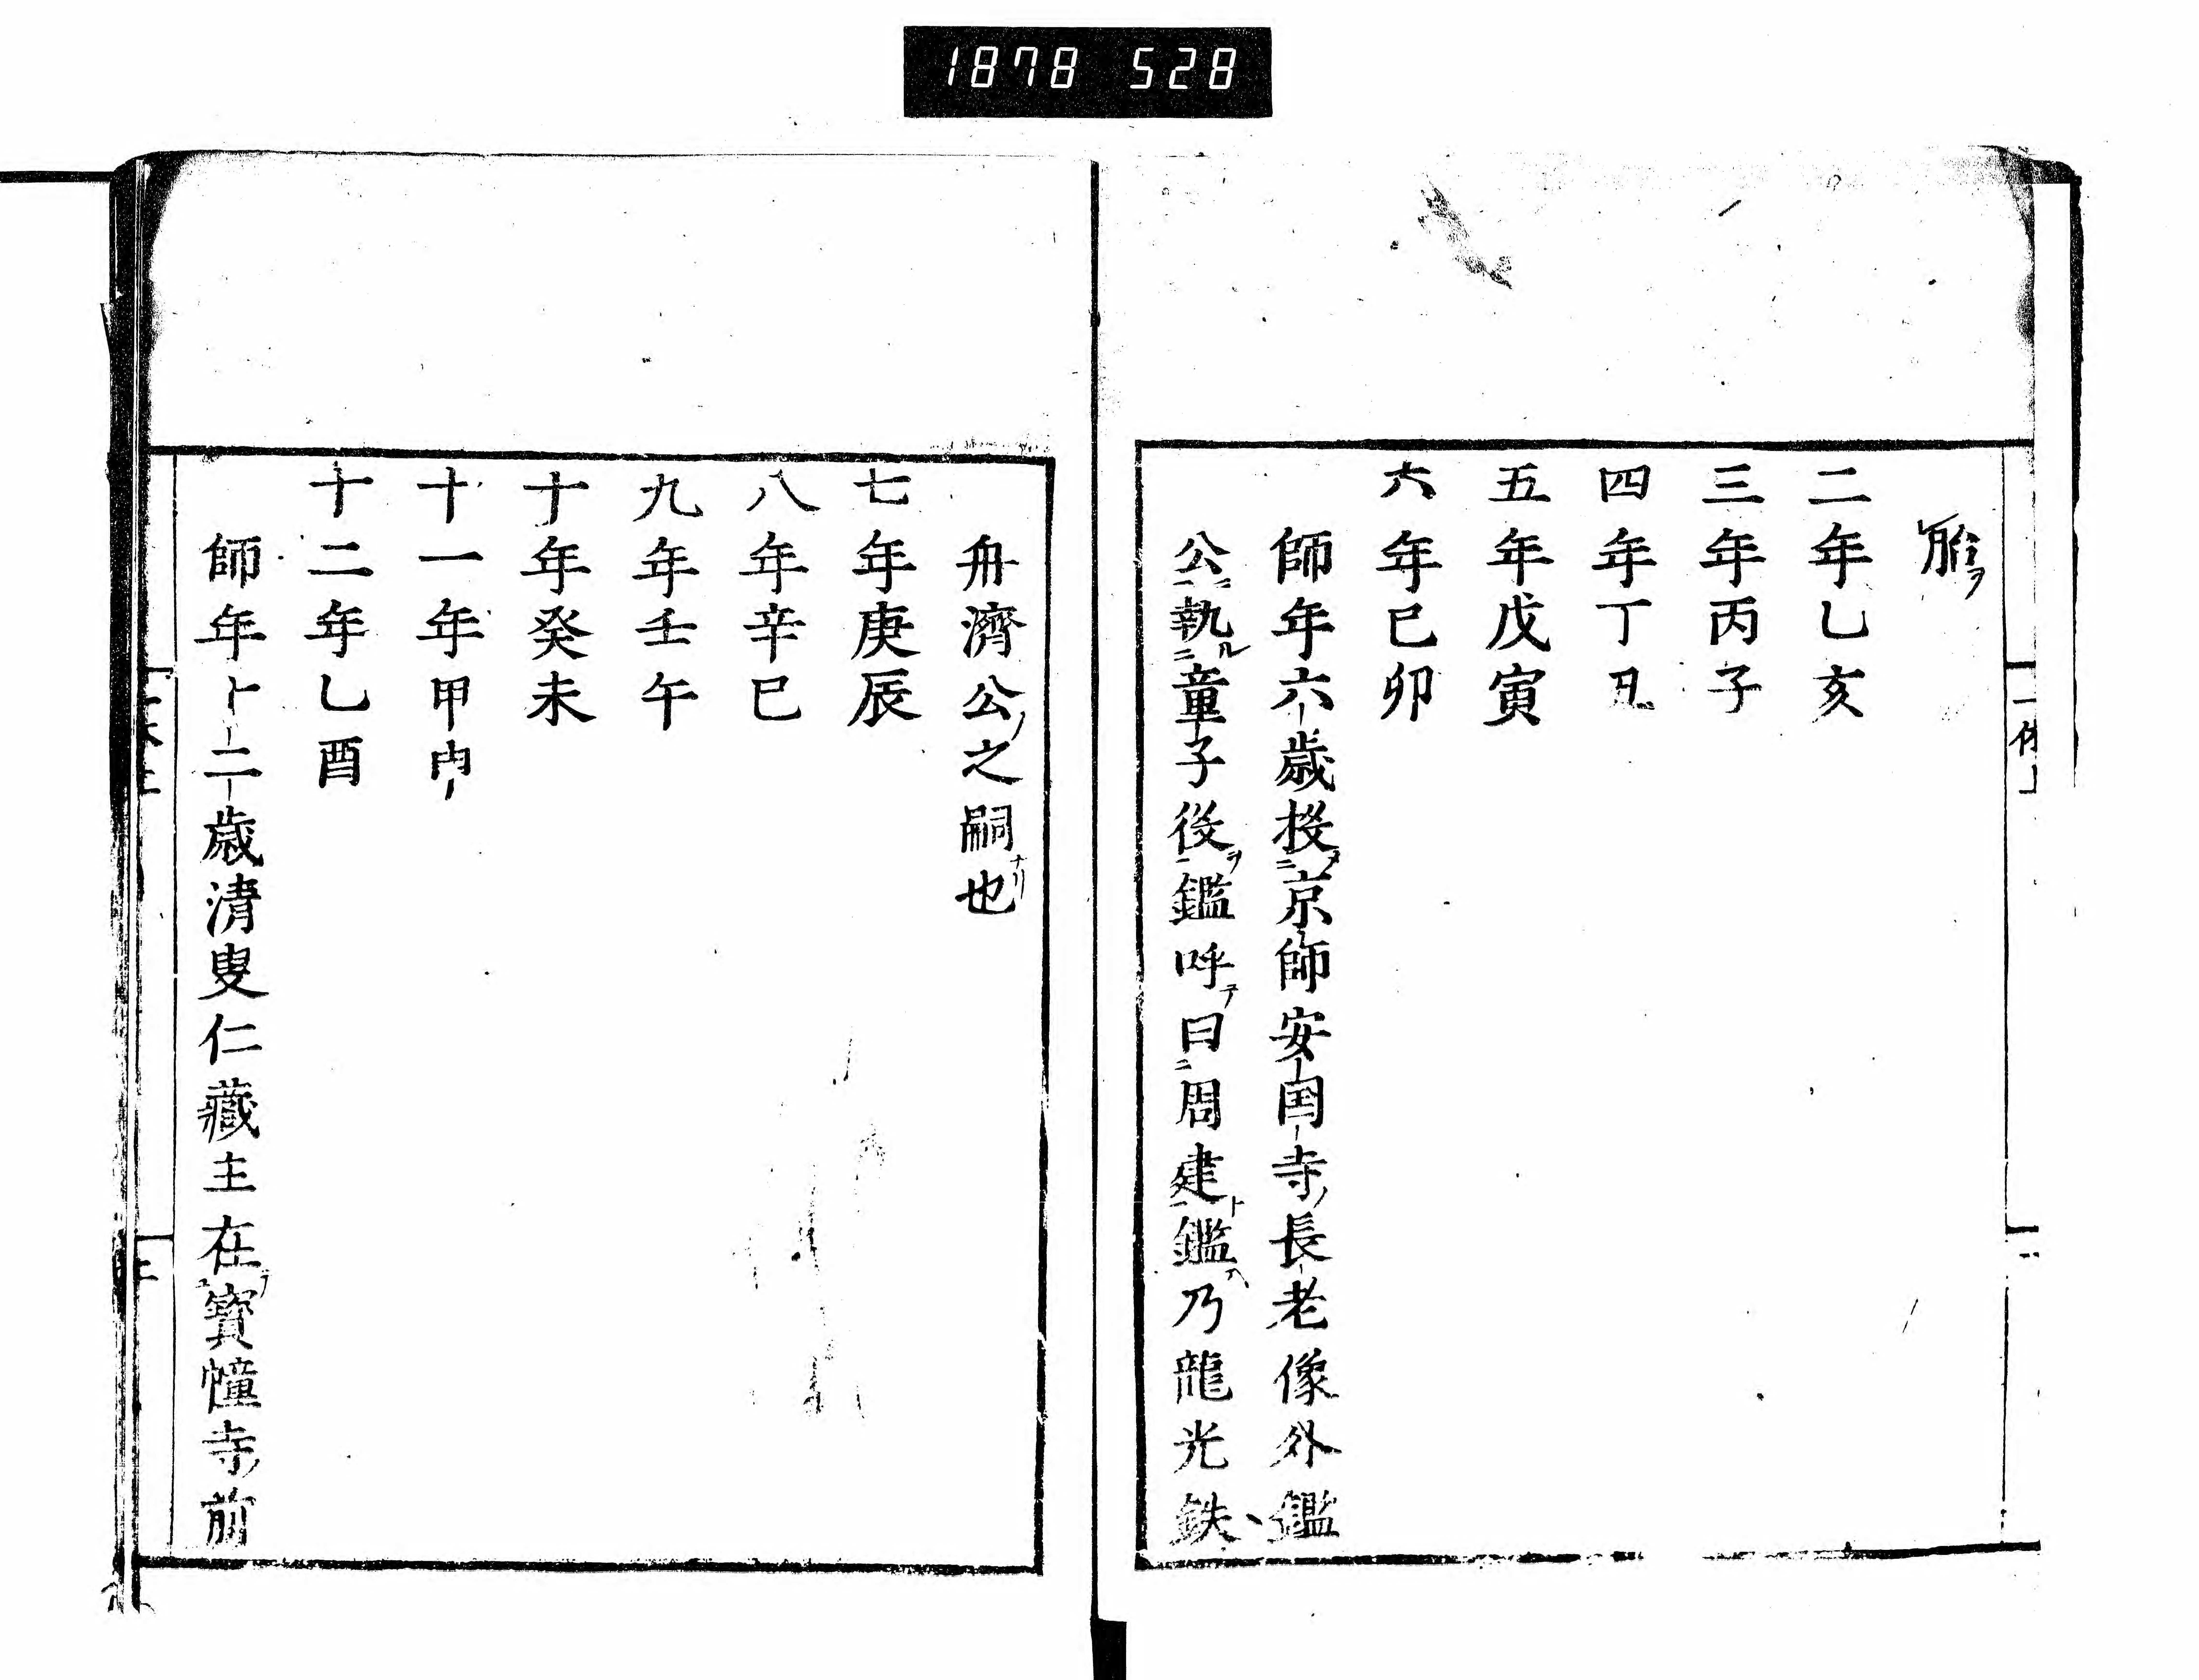 1878 528
胎ヲ
二年乙亥
三年丙子
四年丁丑
五年戊寅
六年己卯
師年六歳投京師安国寺長老像外鑑
公執童子役鑑呼曰周建鑑乃龍光鉄
舟濟公之嗣也
七年庚辰
八年辛巳
九年壬午
十年癸未
十一年甲申
十二年乙酉
師年十二歳清叟仁藏主在寳幢寺前